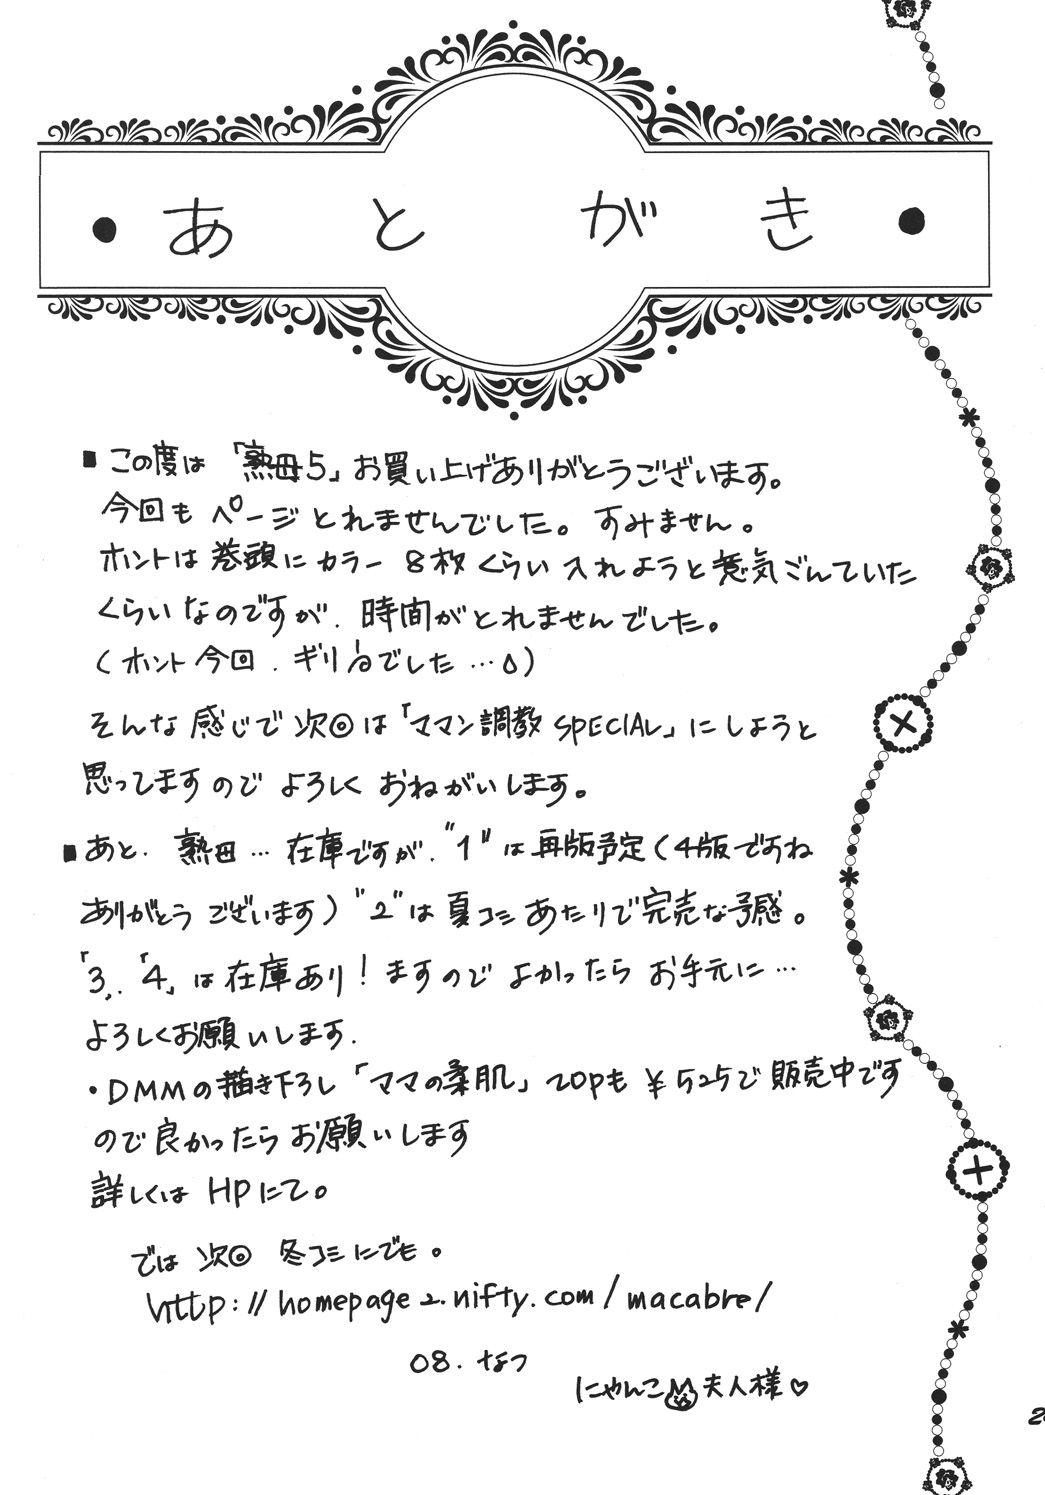 ・あとがき・
■この度は「熟母5」お買い上げありがとうございます。
今回もページとれませんでした。すみません。
ホントは巻頭にカラー8枚くらい入れようと意気ごんでいた
くらいなのですが、時間がとれませんでした。
(ホント今回、ギリでした…)
そんな感じで次回は「ママン調教SPECIAL」にしようと
思ってますのでよろしくおねがいします。
■あと、熟母…在庫ですが、"1"は再版予定(4版ですね
ありがとうございます)"2"は夏コミあたりで完売な予感。
「3」、「4」は在庫あり!ますのでよかったらお手元に…
よろしくお願いします.
・DMMの描き下ろし「ママの柔肌」20pも¥525で販売中です
ので良かったらお願いします
詳しくはHPにて。
では次回冬コミにでも。
http://homepage2.nifty.com/macabre/
08.なつ
にゃんこ夫人様♡